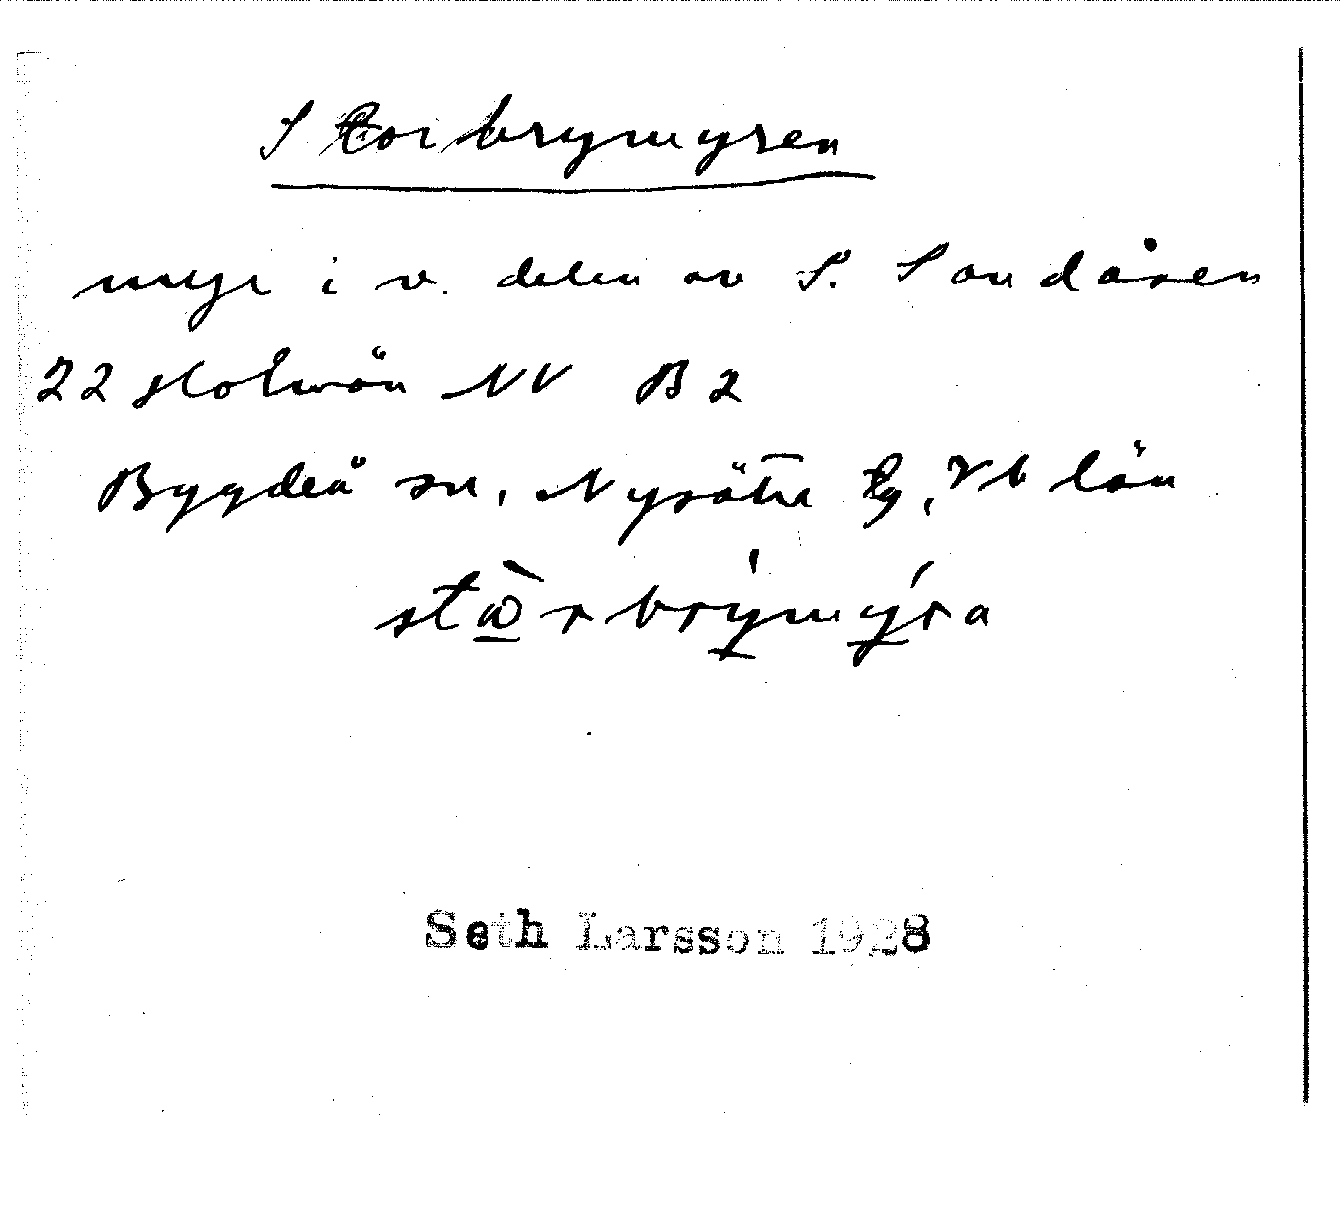 Storbrymyren
myr i v. delen av S. Sandåsen
22 Holmön NV B 2
Bygdeå sn, Nysätra tg, Vb län
stɷ̀rbrýmýra
Seth Larsson 1928